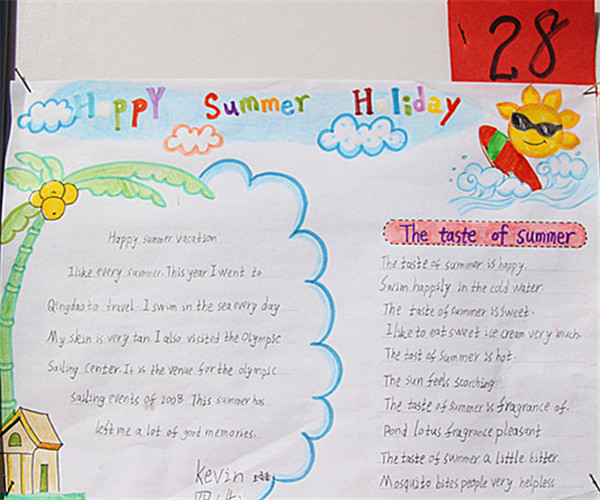 28
Happy Summer Holiday
Happy summer vacation
I like every summer. This year I went to
Qingdao to travel. I swim in the sea every day
My skin is very tan I also visited the Olympic
Sailing Center. It is the venue for the olympic
sailing events of 2008. This summer has
left me a lot of good memories.
Kevin
The taste of summer
The taste of summer is happy.
Swim happily in the cold water.
The taste of summer is sweet.
I like to eat sweet ice cream very much.
The tast of summer is hot.
The sun feels scorching.
The taste of summer is fragrance of.
Pond lotus fragrance pleasant
The taste of summer a little bitter.
Mosquito bites people very helpless